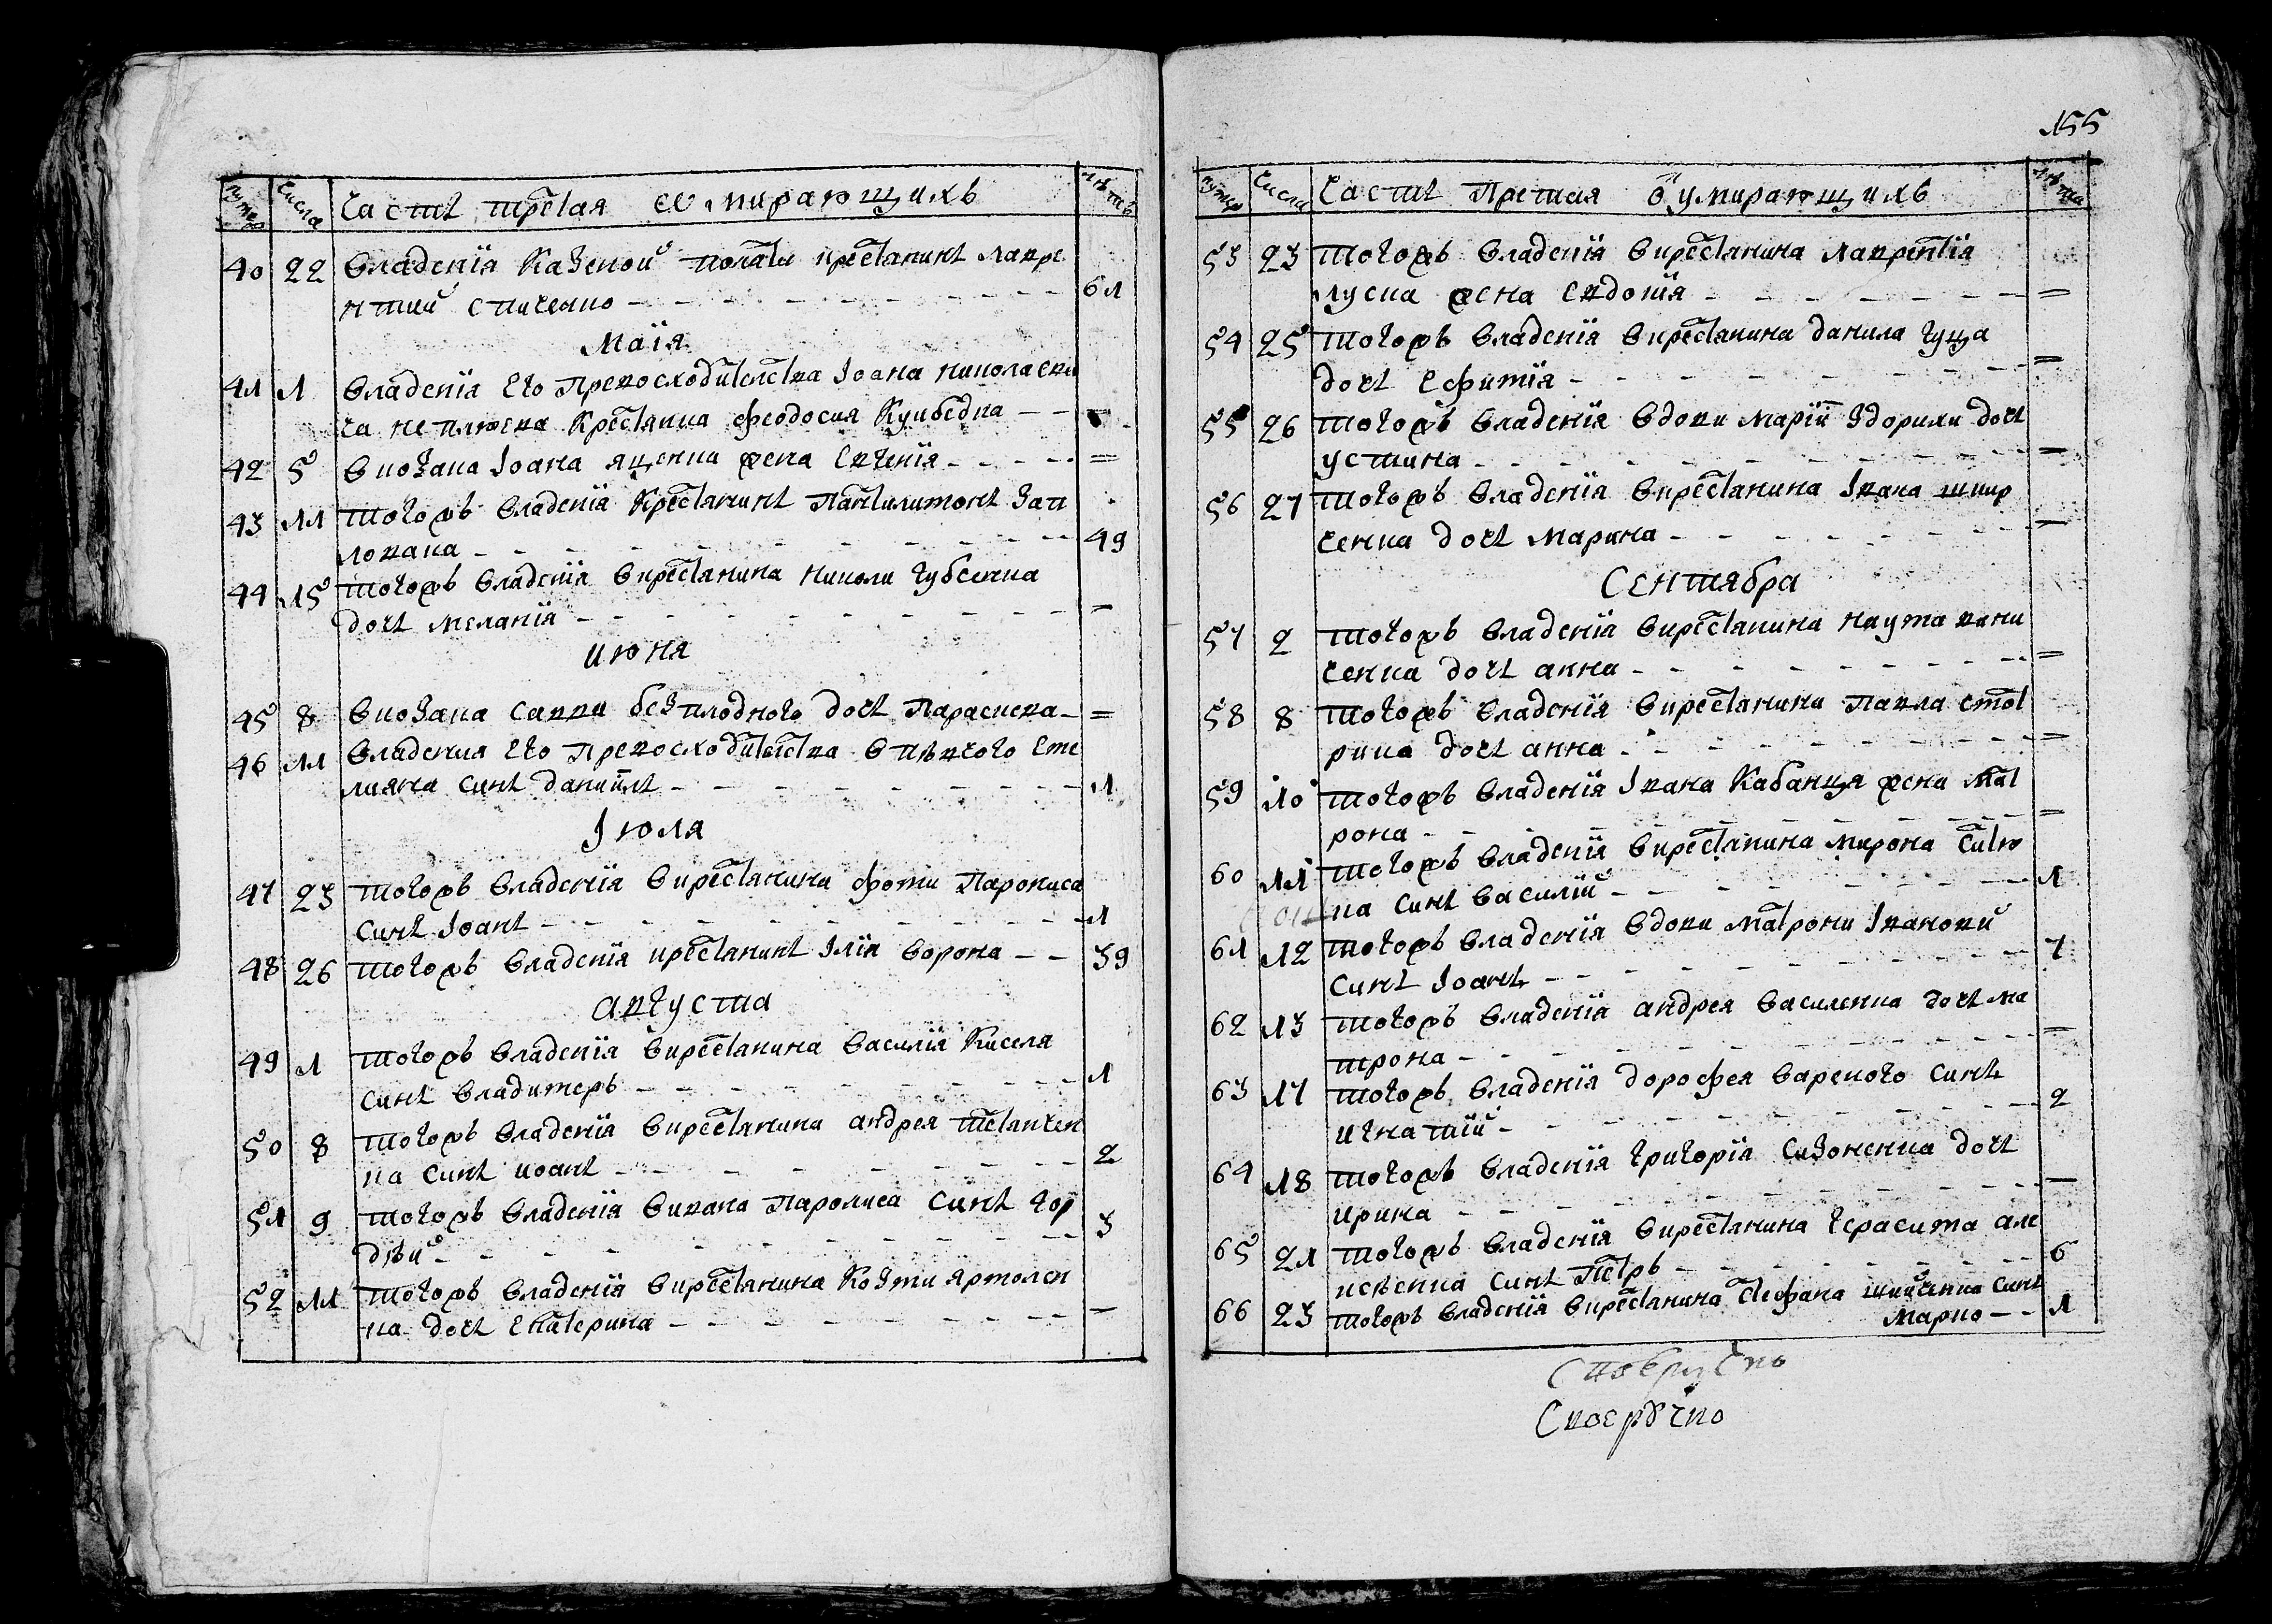 155
нумеръ числа Часть третая ѡ умирающихъ лѣта
40 22 Владенїя Казеной полати крестянинъ Лавре
нтий Спиченко 61
Маїя
41 1 Владенїя Его Превосходителства Іоана Николаеви
ча Неплюева Крестянка Феодосия Куибедка
42 5 Вкозака Іоана Яценка жена Евгенїя
43 11 тогожъ Владенїя Крестянинъ Пантилимонъ Зап
ловака 49
44 15 тогожъ Владенїя Вкрестянина Николи Губсчика
дочь Меланїя
Июня
45 8 Вкозака Савви безплодного дочь Парасиева
46 11 Владения Его Превосходителства Впѣвчого Еме
лияна синъ Даниилъ 1
Іюля
47 23 тогожъ Владенїя Вкрестянина Фоми Парописа
синъ Іоанъ 1
48 26 тогожъ Владенїя крестянинъ Ілїя Ворона 39
Августа
49 1 тогожъ Владенїя Вкрестянина Василїя Киселя
синъ Владимеръ 1
50 8 тогожъ Владенїя Вкрестянина Андрея Степанчен
ка синъ Иоанъ 2
51 9 тогожъ Владенїя Вивана Парописа синъ Гор
дѣй 3
52 11 тогожъ Владенїя Вкрестянина Козми Ярмолен
ка дочь Екатерина
нумеръ Числа Часть Третия ѡ умирающихъ лѣта
53 23 тогожъ Владенїя Вкрестянина Лаврентїя
луска жена Евдокия
54 25 тогожъ Владенїя Вкрестянина Данила Гуща
дочь Ефимїя
55 26 тогожъ Владенїя Вдови Марїи Здорили дочь
Устина
56 27 тогожъ Владенїя Вкрестянина Івана шкир
ченка дочь Марина
Сентября
57 2 тогожъ Владенїя Вкрестянина Наума вани
ченка дочь Анна
58 8 тогожъ Владенїя Вкрестянина Павла Стог
рика дочь Анна
59 10 тогожъ Владенїя Івана Кабанця жена Мат
рона
60 11 тогожъ Владенїя Вкрестянина Мирона Ситю
ка синъ Василий 1
61 12 тогожъ Владенїя Вдови Матрони Івановой
синъ Іоанъ 7
62 13 тогожъ Владенїя Андрея Василенка дочь Ма
трона
63 17 тогожъ Владенїя Дорофея Вареного синъ
Игнатий 2
64 18 тогожъ Владенїя Григорїя Сизоненка дочь
Ирина
65 21 тогожъ Владенїя Вкрестянина Герасима Але
ксѣенка синъ Петръ 6
66 23 тогожъ Владенїя Вкрестянина Стефана синъ
Марко 1
Своеручно